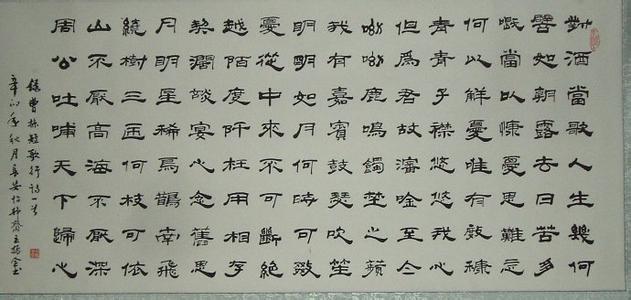 對酒當歌人生幾何
譬如朝露去日苦多
嘅當以慷憂思難忘
何以解憂惟有穅
青青子襟悠悠我心
但為君故瀋唫至今
呦呦鹿鳴埜之蘋
我有嘉賓鼓瑟吹笙
明明如月何時可掇
憂從中來不可斷絕
越陌度阡枉用相存
契闊談宴心念舊恩
月明星稀烏鵲南飛
繞樹三匝何枝可依
山不厭高海不厭深
周公吐哺天下歸心
錄曹操短歌行詩一首
辛卯年秋月